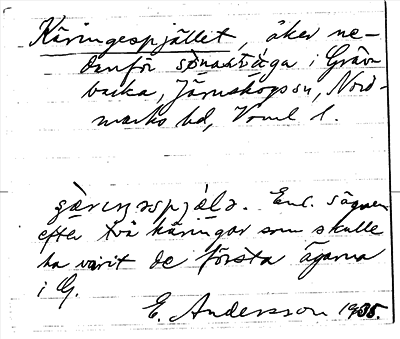 Käringespjället, åker ne-
danför småstuga i Gräs-
backa, Järnskogs sn, Nord-
marks hd, Vrml l.
Enl. sägnen
efter två käringar som skulle
ha varit de första ägarna
i G.
E. Andersson 1935.